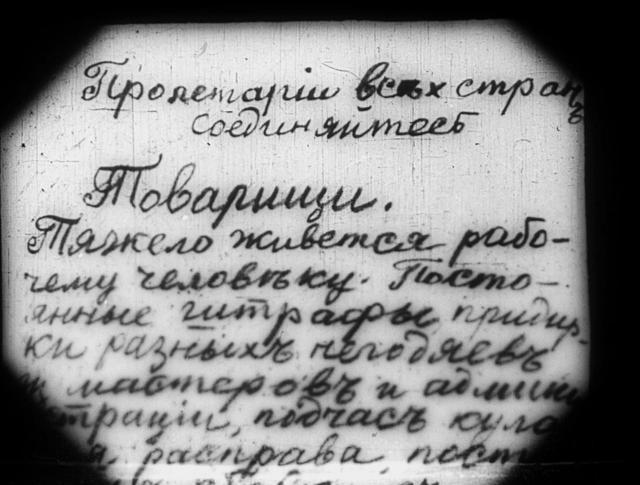 Пролетаріи всѣх странъ
Соединяйтесь
Товарищи.
Тяжело живется рабо-
чему человѣку. Посто-
янные штрафы, придир-
ки разныхъ негодяевъ
мастеровъ и админи
страціи, подчасъ кула
я расправа, пост